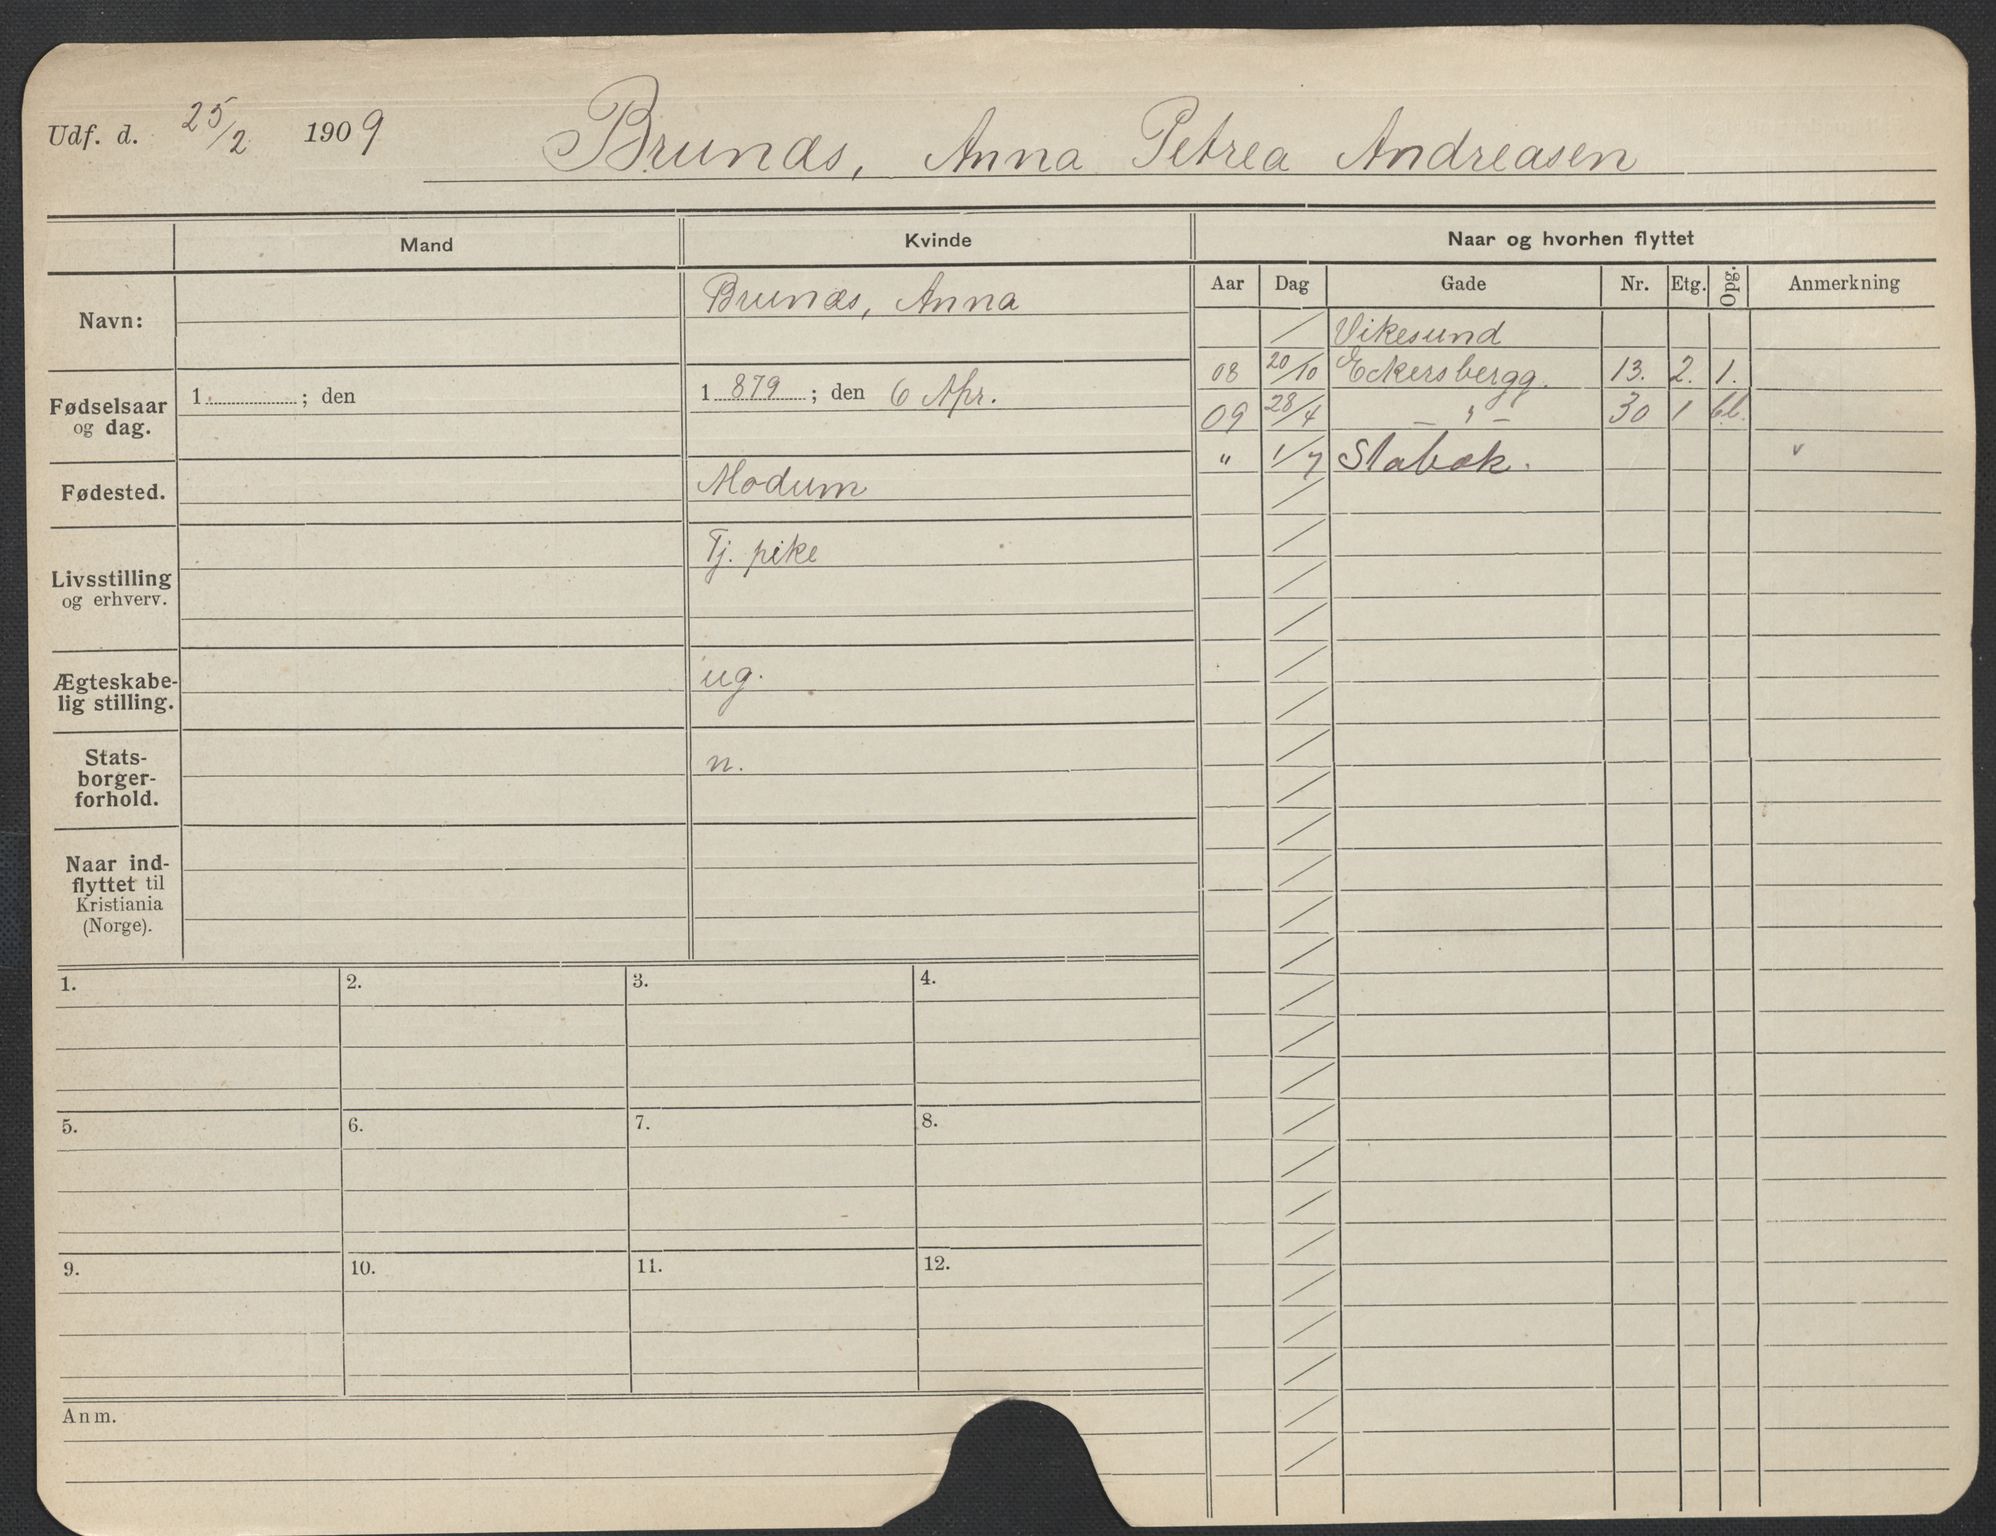 Udf. d. 25/2 1909 Brunæs, Anna Petrea Andreasen
Mand Kvinde Naar og hvorhen flyttet
Aar Dag Gade Nr. Etg. Opg. Anmerkning
Navn: Brunæs, Anna
Fødselsaar og dag. 1 ; den 1 879 ; den 6 Apr.
Fødested. Modum
Livsstilling og erhverv. Tj. pike
Ægteskabe-
lig stilling. ug.
Stats-
borger-
forhold. n.
Naar ind-
flyttet til
Kristiania
(Norge).
/ Vikesund
08 20/10 Eckersbergg. 13. 2. 1.
09 28/4 — " — 30 1
" 1/7 Stabæk. v
1. 2. 3. 4.
5. 6. 7. 8.
9. 10. 11. 12.
Anm.